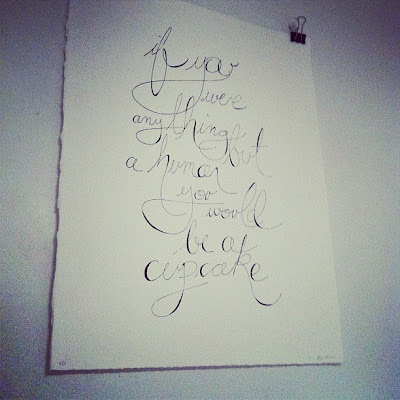 if you
were
anything but
a human
you
would
be a
cupcake